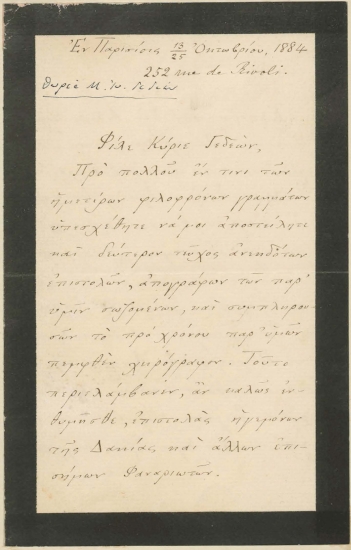 Ἐν Παρισίοις 13/25 Ὀκτωβρίου, 1884
252 rue de Rivoli.
Μ. Ἰω. Γεδεὼν
Φίλε Κύριε Γεδεών,
Πρὸ πολλοῦ ἔν τινι τῶν
ὑμετέρων φιλοφρόνων γραμμάτων
ὑπεσχέθητε νά μοι ἀποστείλητε
καὶ δεύτερον τεῦχος ἀνεκδότων
ἐπιστολῶν, ἀπογράφων τῶν παρ'
ὑμῖν σωζομένων, καὶ συμπληρου-
σῶν τὸ πρὸ χρόνου παρ' ὑμῶν
πεμφθὲν χειρόγραφον. Τοῦτο
περιελάμβανεν, ἂν καλῶς ἐν-
θυμῆσθε, ἐπιστολὰς ἡγεμόνων
τῆς Δακίας καὶ ἄλλων ἐπι-
σήμων Φαναριωτῶν.